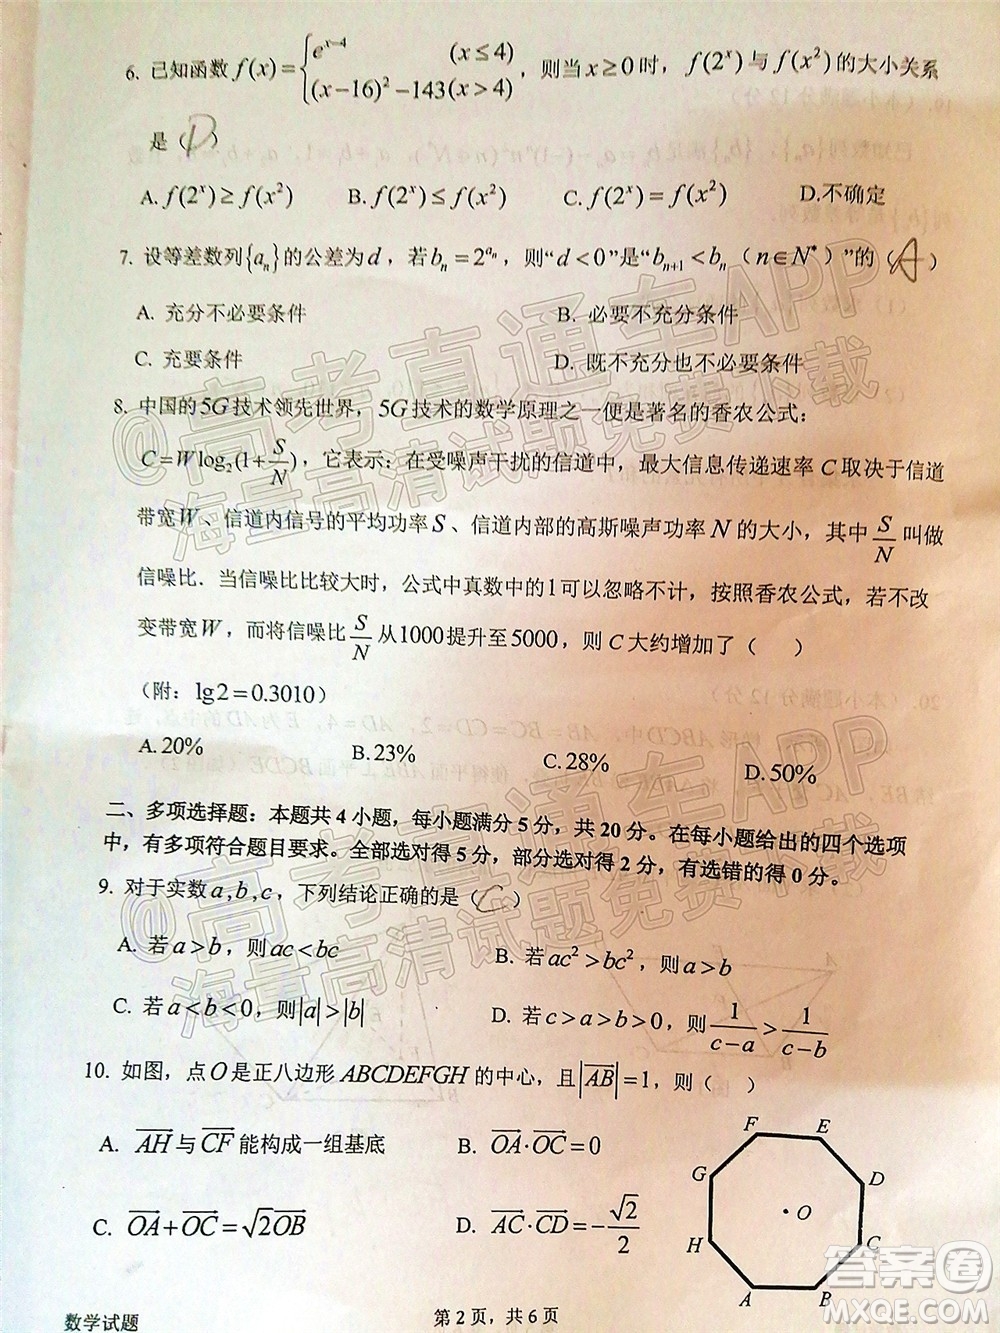 6. 已知函数 f(x)={e^{x-4} (x≤4)
(x-16)²-143(x>4), 则当 x≥0 时, f(2^x) 与 f(x²) 的大小关系
是( D )
A. f(2^x)≥f(x²) B. f(2^x)≤f(x²) C. f(2^x)=f(x²) D.不确定
7. 设等差数列{a_n}的公差为 d, 若 b_n=2^{a_n}, 则“d<0”是“b_{n+1}<b_n (n∈N*)”的( A )
A. 充分不必要条件 B. 必要不充分条件
C. 充要条件 D. 既不充分也不必要条件
8. 中国的5G技术领先世界, 5G技术的数学原理之一便是著名的香农公式:
C=Wlog₂(1+S/N), 它表示: 在受噪声干扰的信道中, 最大信息传递速率 C 取决于信道
带宽W、信道内信号的平均功率 S、信道内部的高斯噪声功率 N 的大小, 其中 S/N 叫做
信噪比. 当信噪比比较大时, 公式中真数中的1可以忽略不计, 按照香农公式, 若不改
变带宽W, 而将信噪比 S/N 从1000提升至5000, 则 C 大约增加了( )
(附: lg2=0.3010)
A.20% B.23% C.28% D.50%
二、多项选择题: 本题共4小题, 每小题满分5分, 共20分。在每小题给出的四个选项
中, 有多项符合题目要求。全部选对得5分, 部分选对得2分, 有选错的得0分。
9. 对于实数 a,b,c, 下列结论正确的是( C )
A. 若 a>b, 则 ac<bc B. 若 ac²>bc², 则 a>b
C. 若 a<b<0, 则 |a|>|b| D. 若 c>a>b>0, 则 1/(c-a)>1/(c-b)
10. 如图, 点 O 是正八边形 ABCDEFGH 的中心, 且 |\overrightarrow{AB}|=1, 则( )
A. \overrightarrow{AH} 与 \overrightarrow{CF} 能构成一组基底 B. \overrightarrow{OA}·\overrightarrow{OC}=0
C. \overrightarrow{OA}+\overrightarrow{OC}=√2\overrightarrow{OB} D. \overrightarrow{AC}·\overrightarrow{CD}=-√2/2
F E
G D
O
H C
A B
数学试题 第2页, 共6页
@高考直通车APP
海量高清试题免费下载
@高考直通车APP
海量高清试题免费下载
答案圈
MXQE.COM